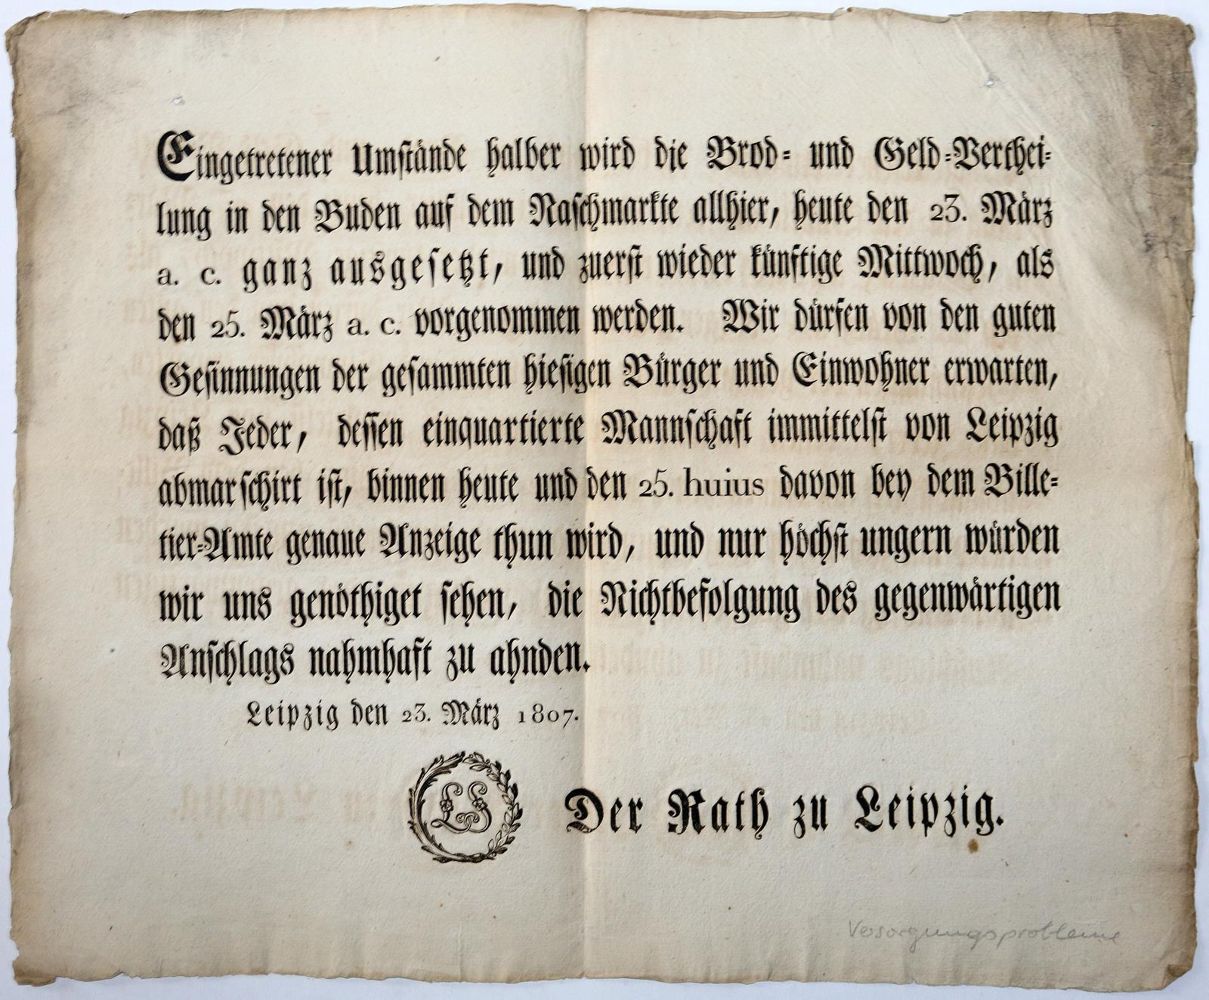 Eingetretener Umstände halber wird die Brod- und Geld-Verthei-
lung in den Buden auf dem Naschmarkte allhier, heute den 23. März
a. c. ganz ausgesetzt, und zuerst wieder künftige Mittwoch, als
den 25. März a. c. vorgenommen werden. Wir dürfen von den guten
Gesinnungen der gesammten hiesigen Bürger und Einwohner erwarten,
daß Jeder, dessen einquartierte Mannschaft immittelst von Leipzig
abmarschirt ist, binnen heute und den 25. huius davon bey dem Bille-
tier-Amte genaue Anzeige thun wird, und nur höchst ungern würden
wir uns genöthiget sehen, die Nichtbefolgung des gegenwärtigen
Anschlags nahmhaft zu ahnden.
Leipzig den 23. März 1807.
LS
Der Rath zu Leipzig.
Versorgungsprobleme